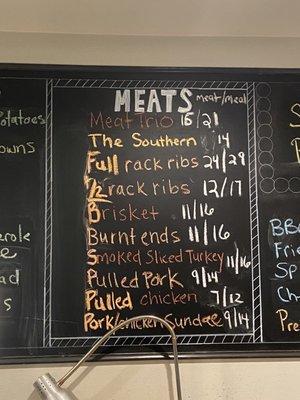 MEATS meat/meal
Meat Trio 16/21
The Southern /14
Full rack ribs 24/29
1/2 rack ribs 12/17
Brisket 11/16
Burnt ends 11/16
Smoked Sliced Turkey 11/16
Pulled Pork 9/14
Pulled chicken 7/12
Pork/chicken Sundae 9/14